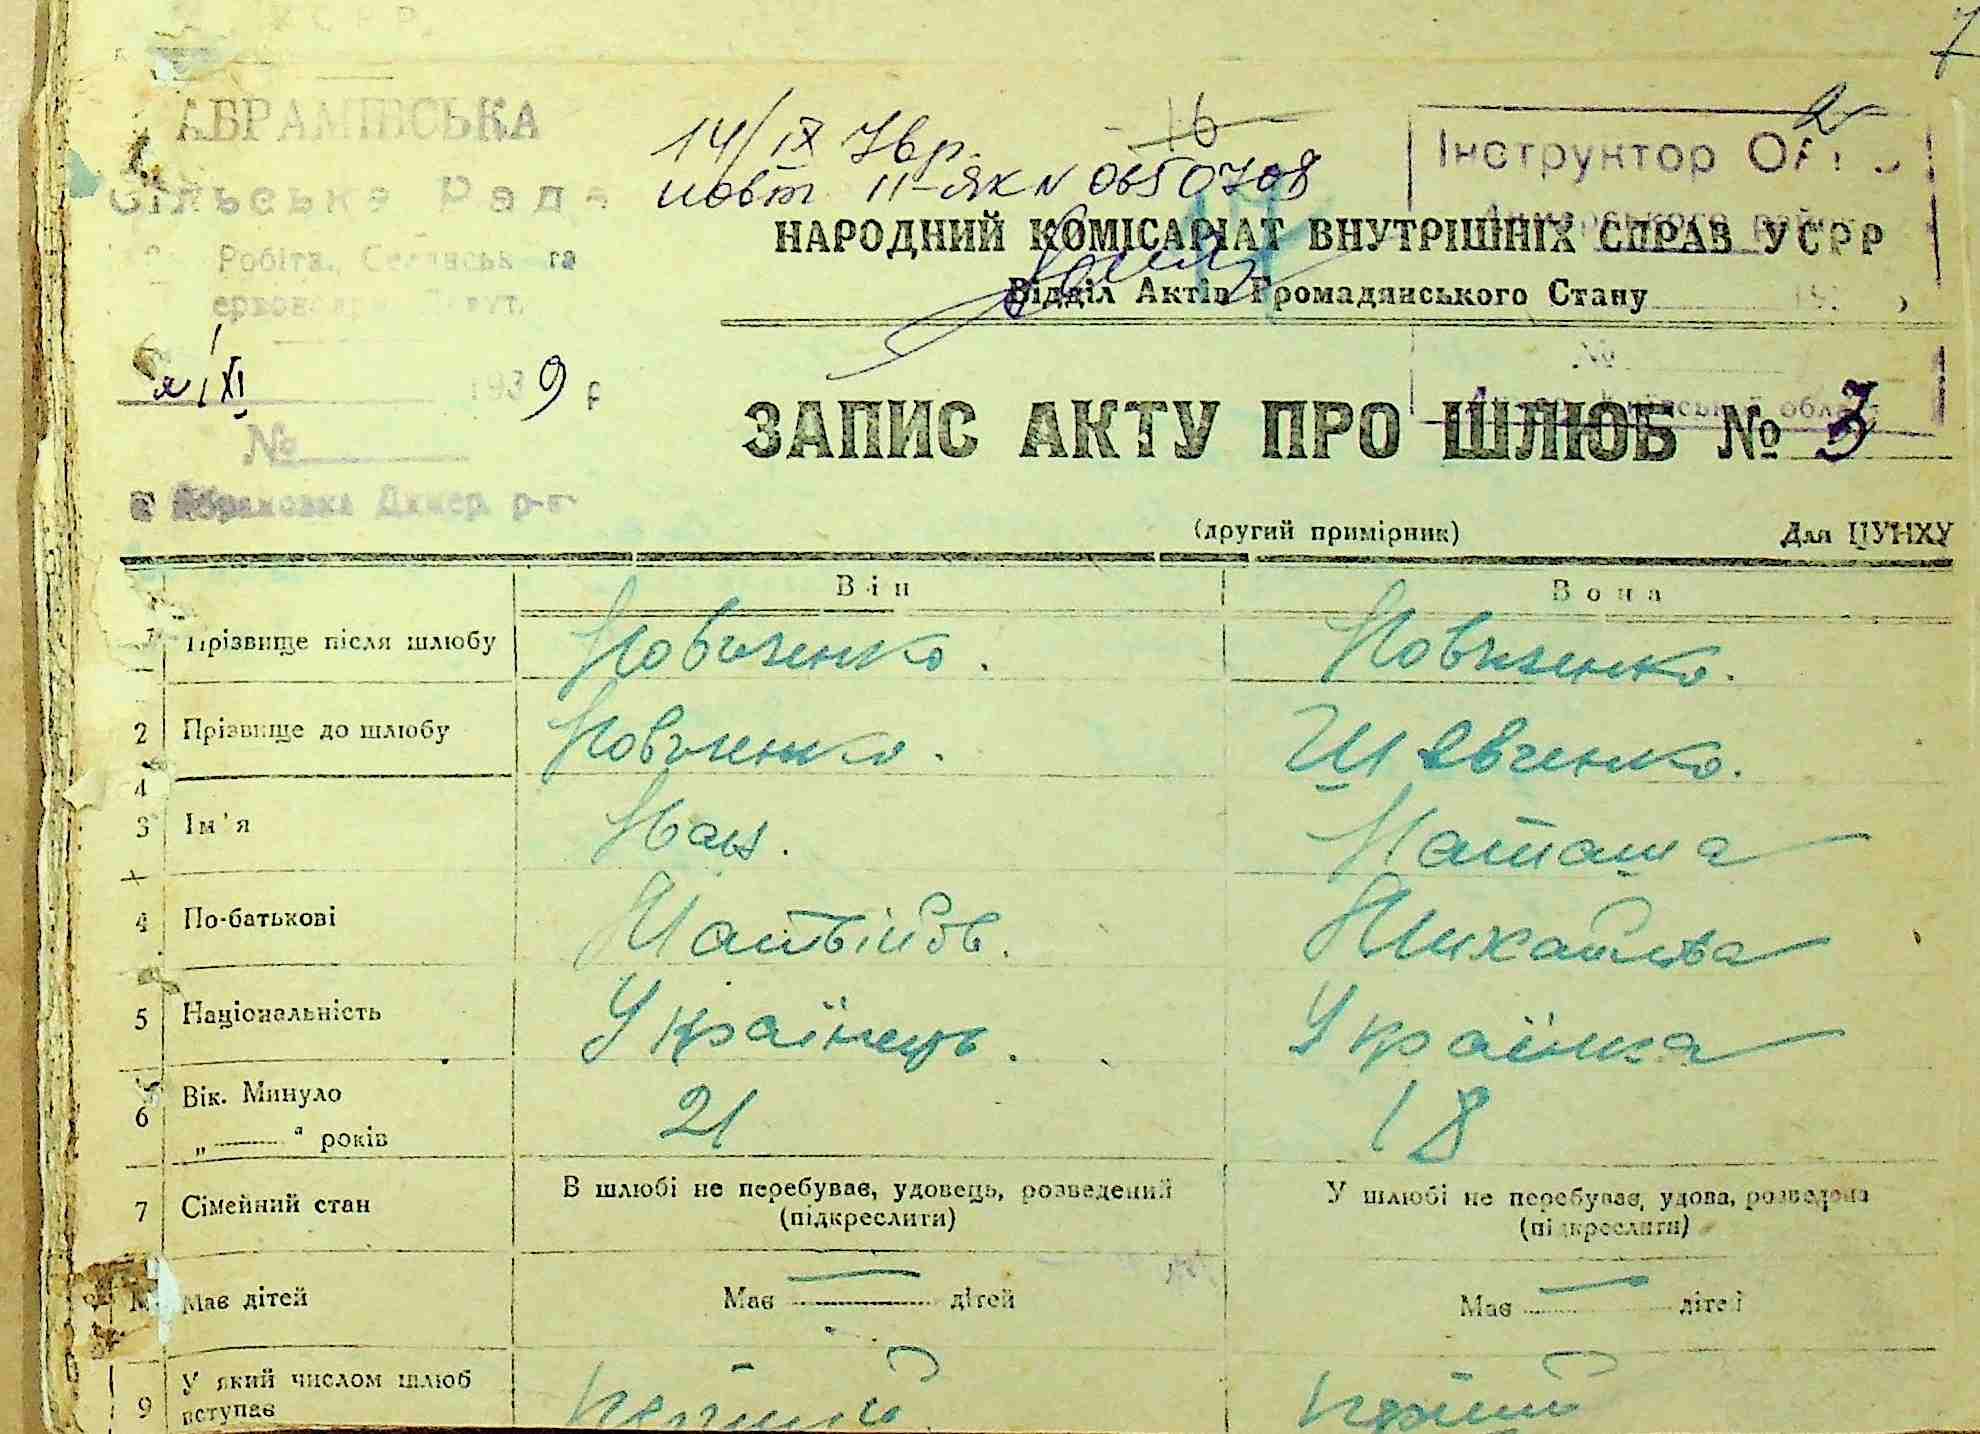 7
АБРАМІВСЬКА
Сільська Рада
Робітн., Селянськ та
14/IX 76 р.
повт II-ЯК N 0650708
16
2
Інструктор
НАРОДНИЙ КОМІСАРІАТ ВНУТРІШНІХ СПРАВ УСРР
Відділ Актів Громадянського Стану
1/XI 1939 р
№
№
ЗАПИС АКТУ ПРО ШЛЮБ № 3
(другий примірник) Для ЦУНХУ
Він Вона
Прізвище після шлюбу Новиченко. Новиченко.
2 Прізвище до шлюбу Новиченко. Шевченко.
3 Ім'я Іван. Наташа
4 По-батькові Матвійов. Михайлова
5 Національність Українець. Українка
6 Вік. Минуло
„ " років 21 18
7 Сімейний стан В шлюбі не перебуває, удовець, розведений (підкреслити) У шлюбі не перебуває, удова, розведена (підкреслити)
Має дітей Має — дітей Має — дітей
9 У який числом шлюб вступає перший перший